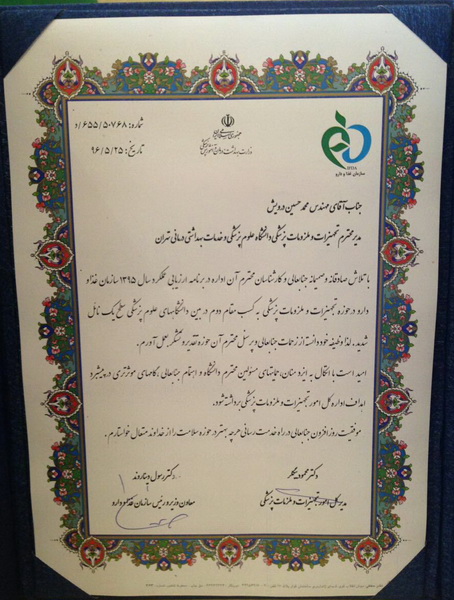 شماره: ۶۵۵/۵۰۷۶۸/د
تاریخ: ۹۶/۵/۲۵
جمهوری اسلامی ایران
وزارت بهداشت، درمان و آموزش پزشکی
IFDA
سازمان غذا و دارو
جناب آقای مهندس محمد حسین درویش
مدیر محترم تجهیزات و ملزومات پزشکی دانشگاه علوم پزشکی و خدمات بهداشتی درمانی تهران
با تلاش صادقانه و صمیمانه جنابعالی و کارشناسان محترم آن اداره در برنامه ارزیابی عملکرد سال ۱۳۹۵ سازمان غذا و
دارو در حوزه تجهیزات و ملزومات پزشکی به کسب مقام دوم در بین دانشگاههای علوم پزشکی سطح یک نائل
شدید. لذا وظیفه خود دانسته از زحمات جنابعالی و پرسنل محترم آن حوزه تقدیر و تشکر بعمل آورم.
امید است با اتکال به ایزد منان، حمایتهای مسئولین محترم دانشگاه و اهتمام جنابعالی گامهای موثرتری در پیشبرد
اهداف اداره کل امور تجهیزات و ملزومات پزشکی برداشته شود.
موفقیت روز افزون جنابعالی در راه خدمت رسانی هر چه بهتر در حوزه سلامت را از خداوند متعال خواستارم.
دکتر محمود بیگلر
مدیر کل امور تجهیزات و ملزومات پزشکی
دکتر رسول دیناروند
معاون وزیر و رئیس سازمان غذا و دارو